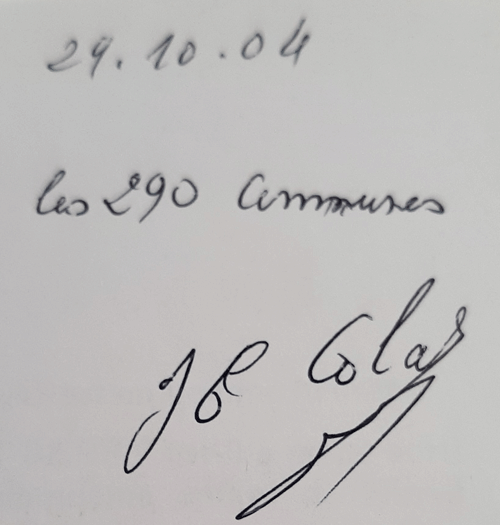 29.10.04
les 290 Communes
JC Colas